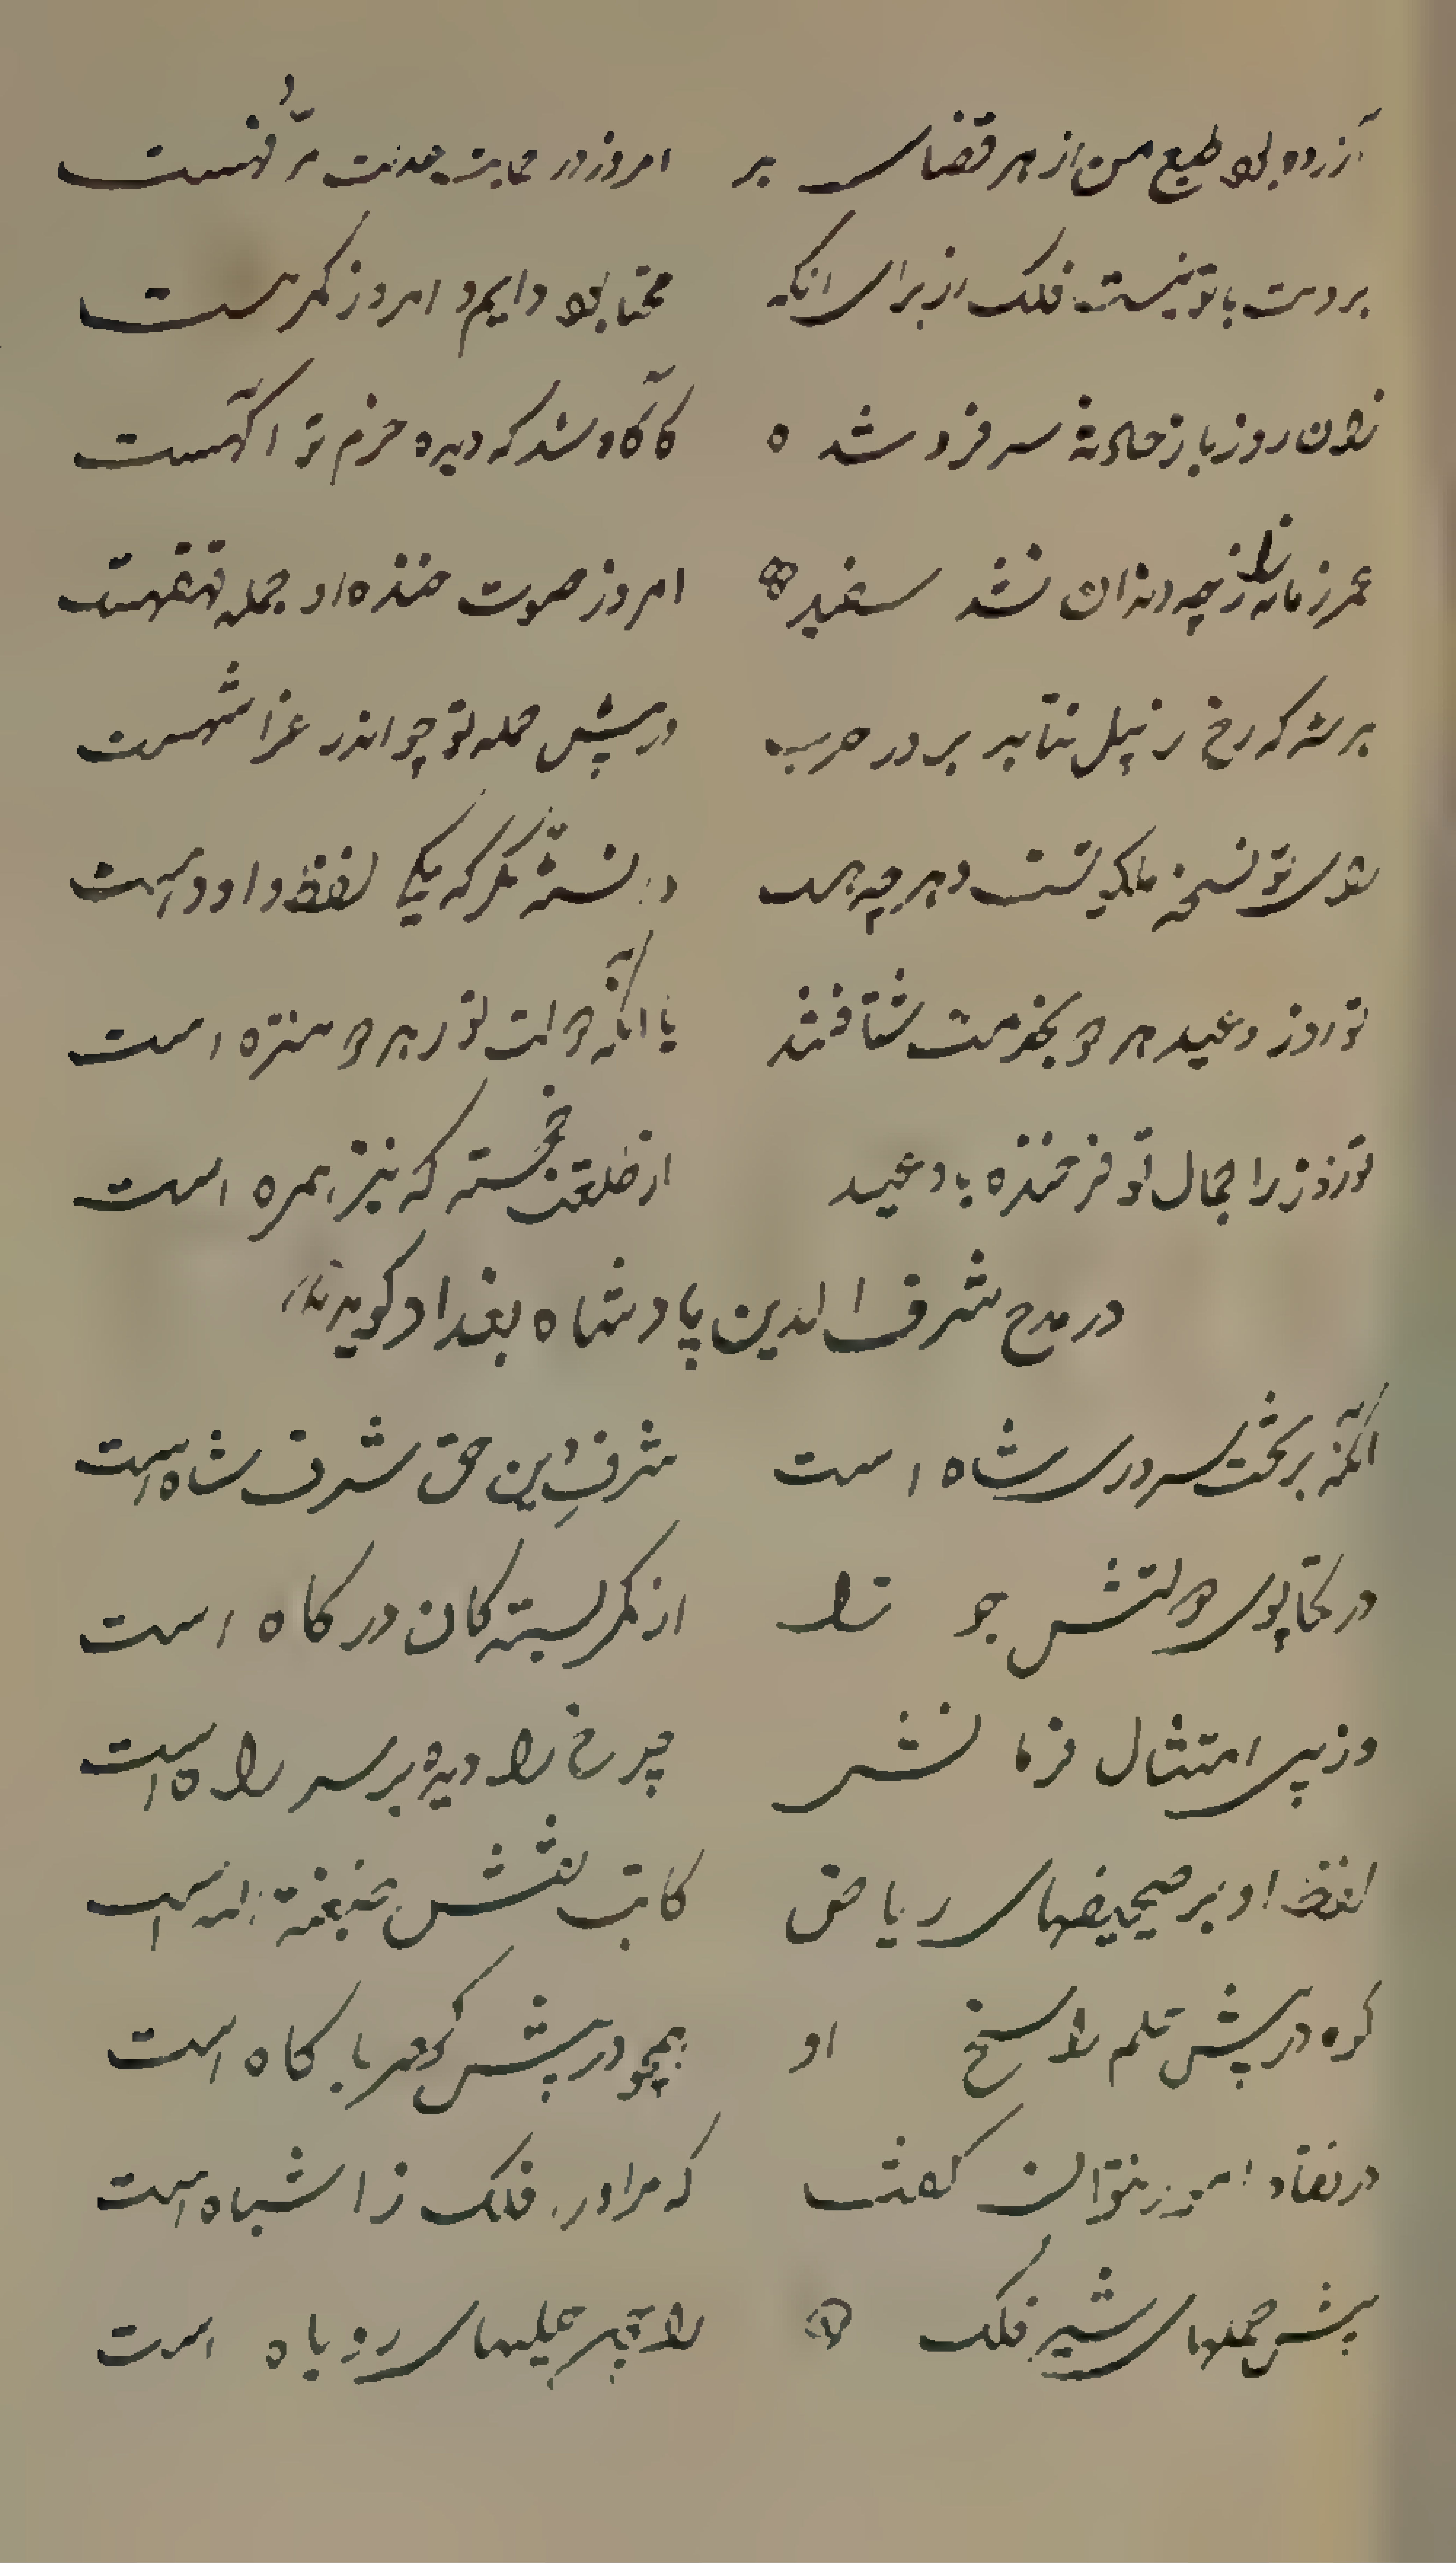 آزرده بود طبع من از هر قضای بر امروز در حمایت عدلت مرفهست
بر دست با تو نیست فلک از برای انکه محتا بود دایم و امروز کمرهست
زان روز باز حادثه سر فرو شده کآگاه شد که دیده حزم تو اگهست
عمر زمانه را ز چه دندان نشد سفید امروز صوت خنده او جمله قهقهست
هر شه که رخ ز پیل نتابد بر در حرب در پیش حمله تو چو اندر عرا شهست
تو نسخه ملک تست و هر چه هست در نسخه مگر که یکی لفظ داوودست
نوروز و عید هر دو بخدمت شتافتند با انکه دولت تو ز هر دو منزه است
نوروز را جمال تو فرخنده باد و عید از طلعت خجسته که نیز همره است
در مدح شرف الدین پادشاه بغداد کوید
انکه بر تخت سروری شاه است شرف دین حق شرفشاه است
در تکاپوی دولتش جوزا از کمر بسته کان درکاه است
وز پی امتثال فرمانش چرخ را دیده بر سر راه است
لفظ او بر صحیفهای ریاض کاتب نقش
کوه در پیش حلم راسخ او همچو در پیش کهربا کاه است
در نفاد امور نتوان گفت که مر او را فلک ز اشباه است
پیش حملهای شیر فلک را حیلهای روباه است